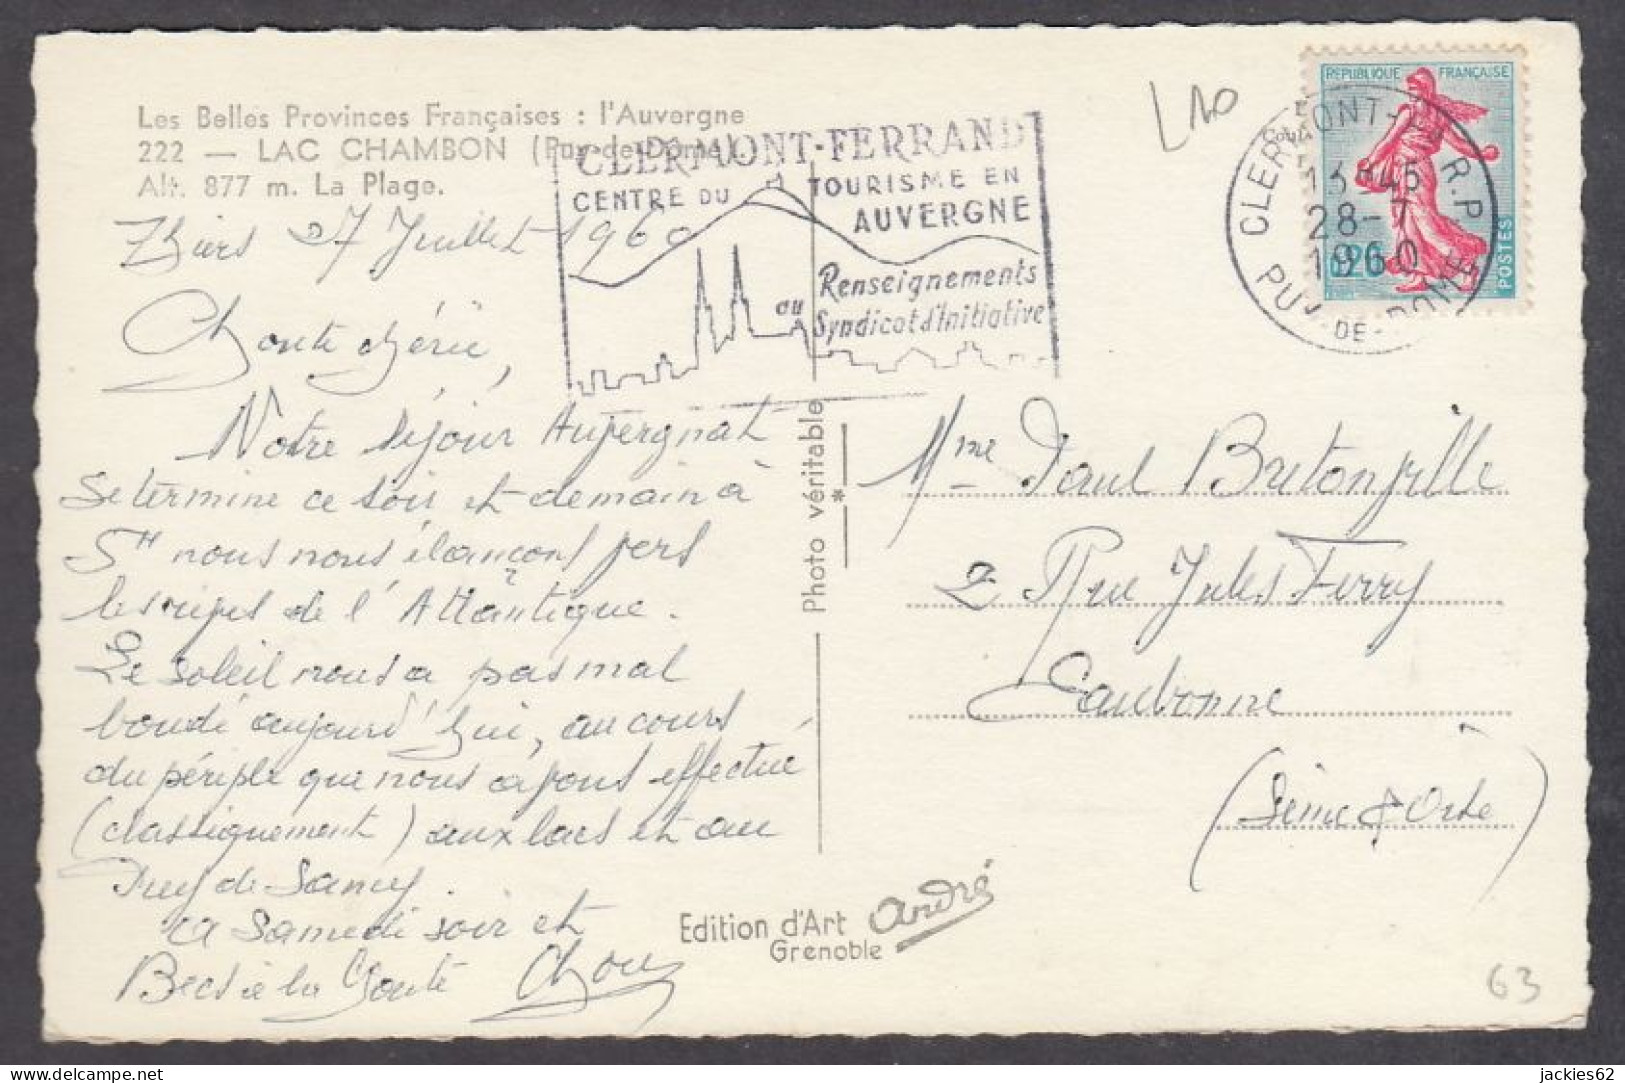 Les Belles Provinces Françaises : l'Auvergne
222 — LAC CHAMBON (Puy-de-Dôme)
Alt. 877 m. La Plage.
CLERMONT-FERRAND
CENTRE DU TOURISME EN
AUVERGNE
Renseignements
au Syndicat d'Initiative
REPUBLIQUE FRANÇAISE
POSTES
CLERMONT-FD R.P.
13H45
28-7
1960
PUY-DE-DOME
27 Juillet 1960
chérie,
Notre séjour Auvergnat
se termine ce soir et demain à
5H nous nous élançons vers
les rives de l'Atlantique.
Le soleil nous a pas mal
boudé aujourd'hui, au cours
du périple que nous avons effectué
(classiquement) aux lacs et au
Puy de Sancy.
à Samedi soir et
Becs à la
Mme Paul Bretonville
2 Rue Jules Ferry
Eaubonne
(Seine & Oise)
Photo véritable
Edition d'Art André
Grenoble
63
jackies62